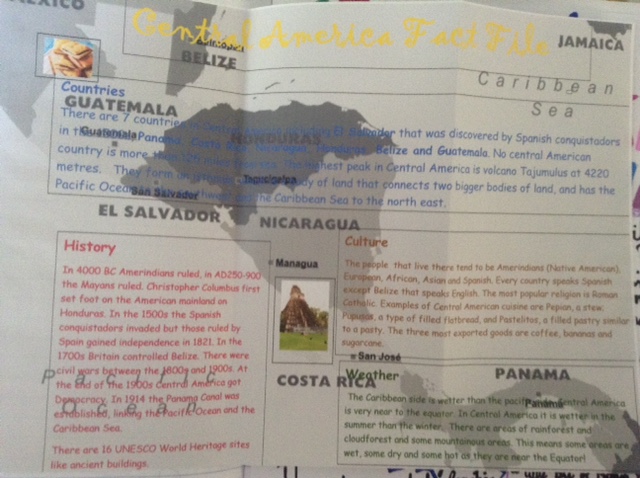 MEXICO
Central America Fact File
JAMAICA
BELIZE
Caribbean
Sea
Countries
GUATEMALA
There are 7 countries in Central America including El Salvador that was discovered by Spanish conquistadors
in the Panama, Costa Rica, Nicaragua, Honduras, Belize and Guatemala. No central American
Guatemala
HONDURAS
country is more than 125 miles from the sea. The highest peak in Central America is volcano Tajumulus at 4220
metres. They form an isthmus, a body of land that connects two bigger bodies of land, and has the
Tegucigalpa
Pacific Ocean to the southwest and the Caribbean Sea to the north east.
San Salvador
EL SALVADOR
NICARAGUA
History
In 4000 BC Amerindians ruled, in AD250-900
the Mayans ruled. Christopher Columbus first
set foot on the American mainland on
Honduras. In the 1500s the Spanish
conquistadors invaded but those ruled by
Spain gained independence in 1821. In the
1700s Britain controlled Belize. There were
civil wars between the 1800s and 1900s. At
the end of the 1900s Central America got
Democracy. In 1914 the Panama Canal was
established, linking the Pacific Ocean and the
Caribbean Sea.
There are 16 UNESCO World Heritage sites
like ancient buildings.
Pacific
Ocean
Managua
Culture
The people that live there tend to be Amerindians (Native American),
European, African, Asian and Spanish. Every country speaks Spanish
except Belize that speaks English. The most popular religion is Roman
Catholic. Examples of Central American cuisine are Pepian, a stew,
Pupusas, a type of filled flatbread, and Pastelitos, a filled pastry similar
to a pasty. The three most exported goods are coffee, bananas and
sugarcane.
San José
COSTA RICA
Weather
PANAMA
Panama
The Caribbean side is wetter than the pacific. Central America
is very near to the equator. In Central America it is wetter in the
summer than the winter. There are areas of rainforest and
cloudforest and some mountainous areas. This means some areas are
wet, some dry and some hot as they are near the Equator!